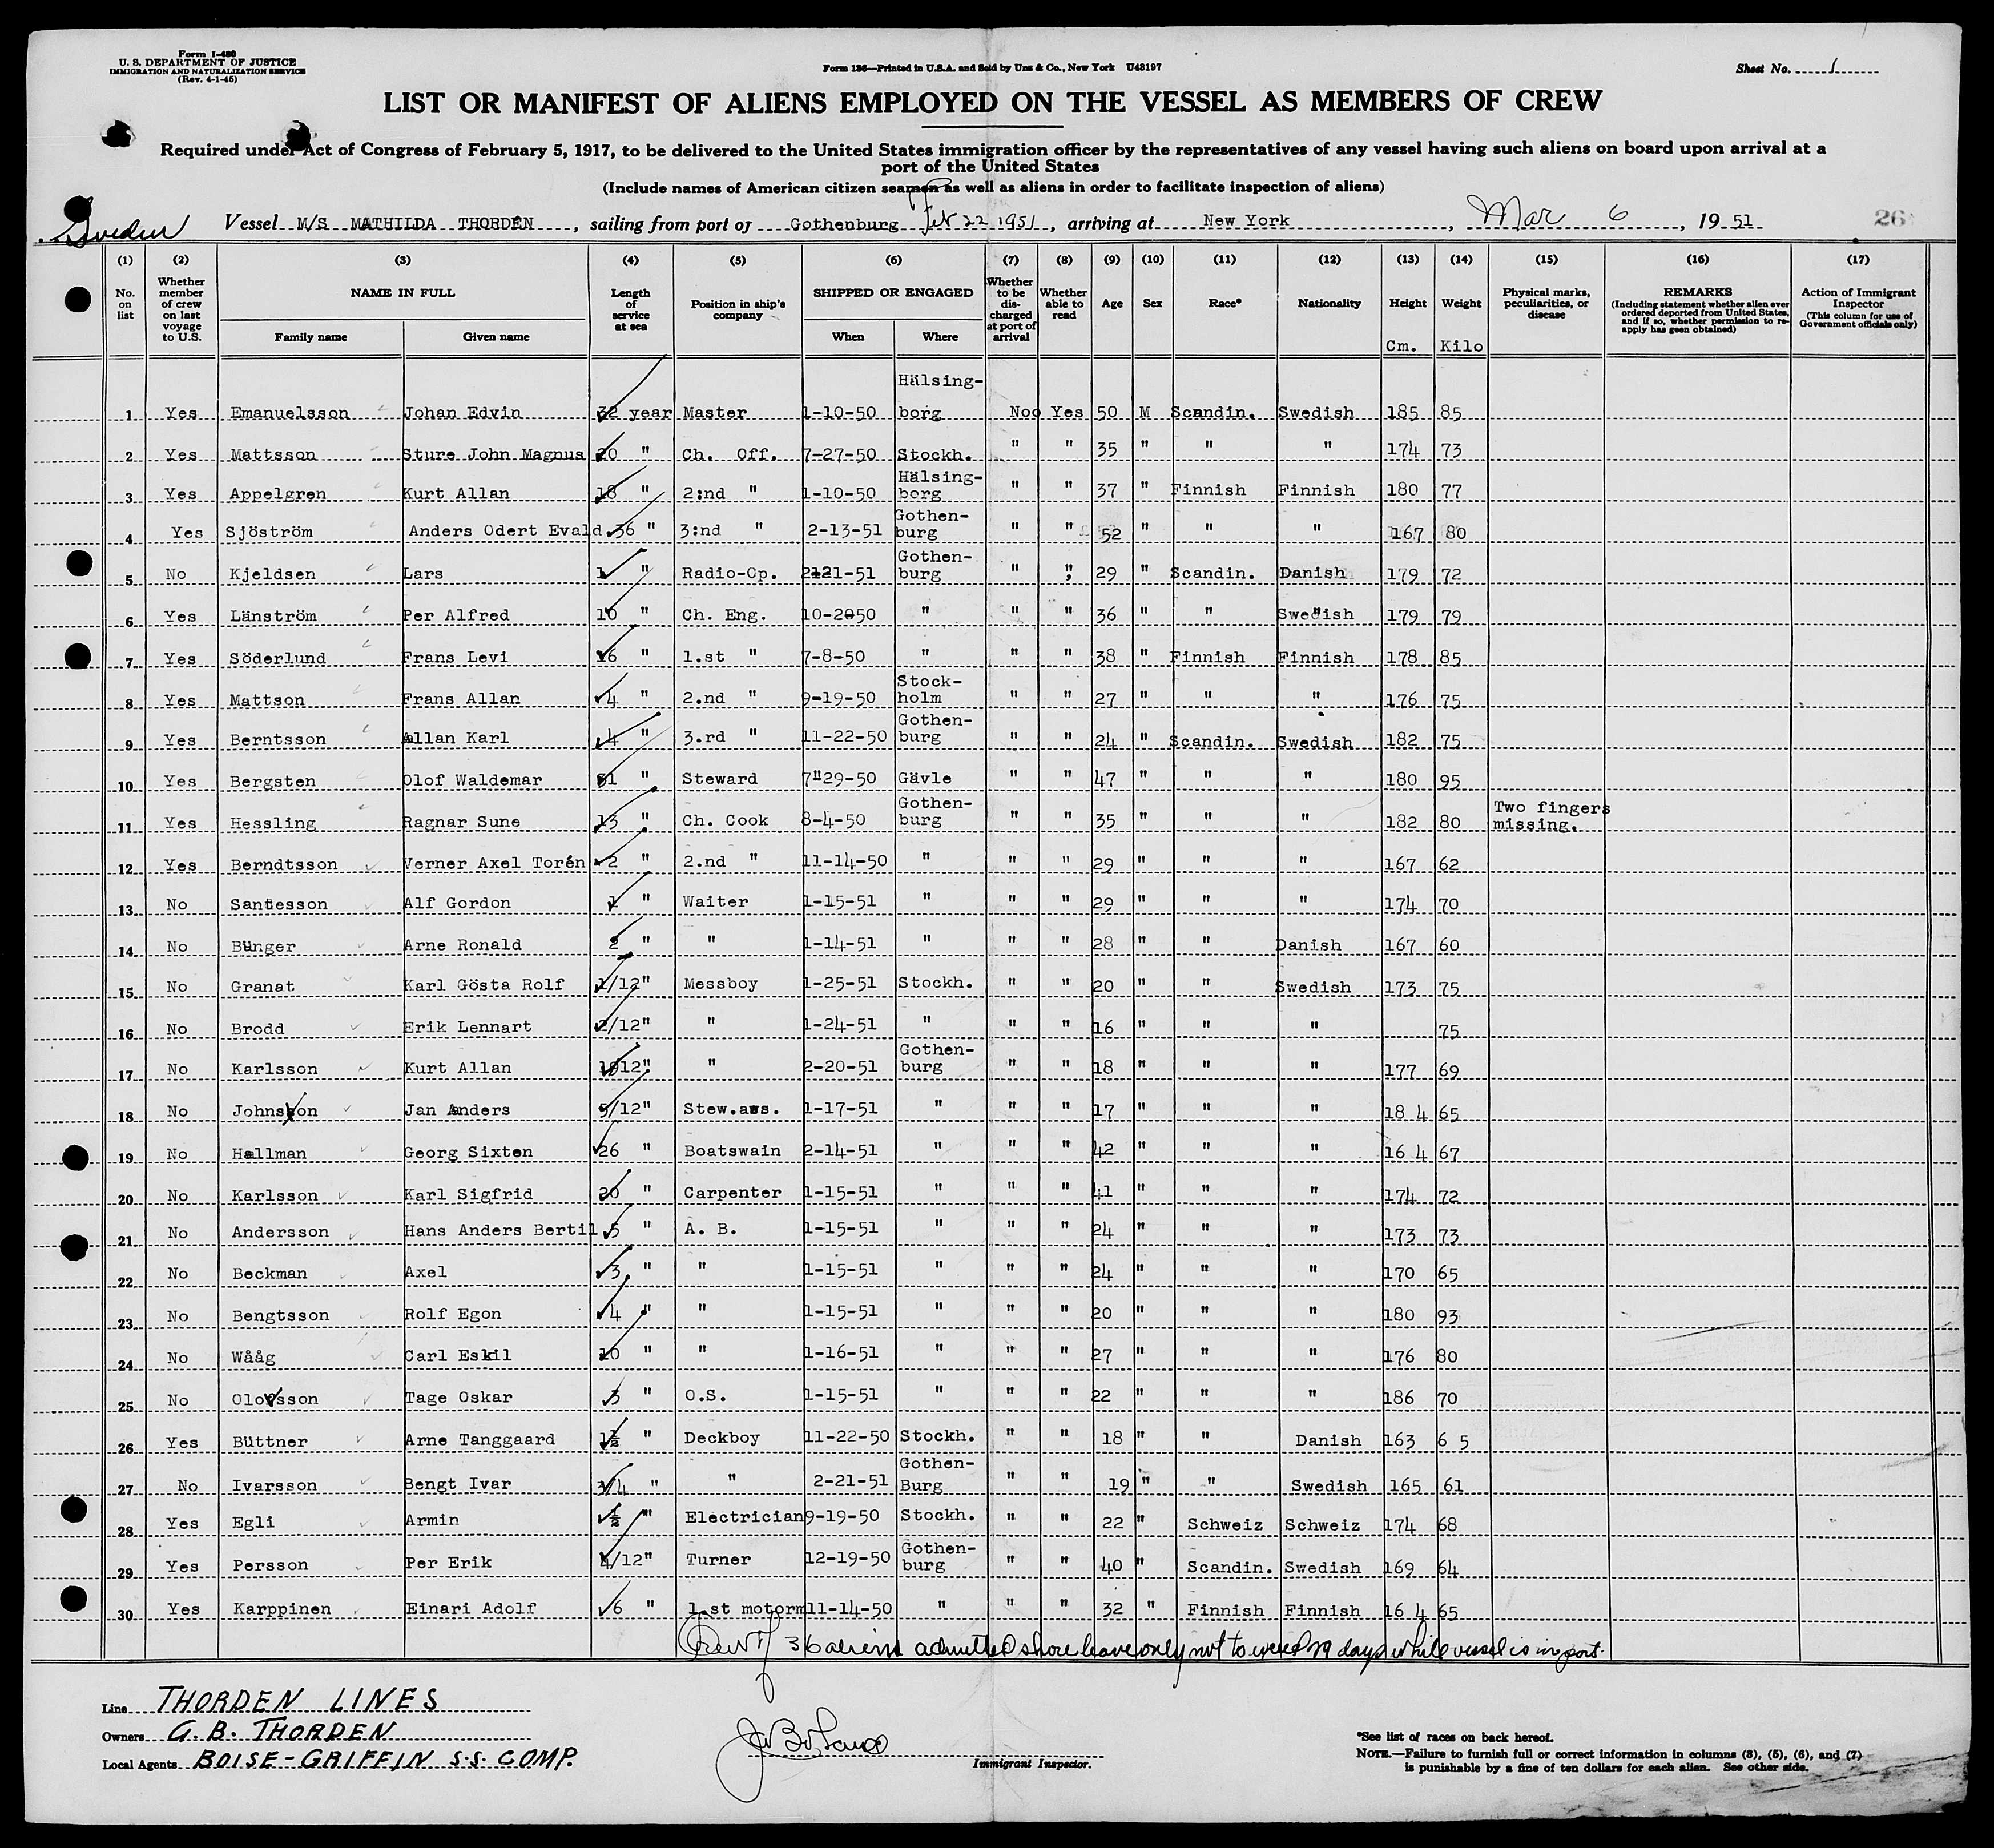 Form I-480
U. S. DEPARTMENT OF JUSTICE
IMMIGRATION AND NATURALIZATION SERVICE
(Rev. 4-1-45)
Form 136—Printed in U.S.A. and Sold by Unz & Co., New York U43197
Sheet No. 1
LIST OR MANIFEST OF ALIENS EMPLOYED ON THE VESSEL AS MEMBERS OF CREW
Required under Act of Congress of February 5, 1917, to be delivered to the United States immigration officer by the representatives of any vessel having such aliens on board upon arrival at a
port of the United States
(Include names of American citizen seamen as well as aliens in order to facilitate inspection of aliens)
Sweden Vessel M/S MATHILDA THORDÉN, sailing from port of Gothenburg Feb 22 1951, arriving at New York, Mar 6, 1951 26
(1) (2) (3) (4) (5) (6) (7) (8) (9) (10) (11) (12) (13) (14) (15) (16) (17)
No. on list Whether member of crew on last voyage to U.S. NAME IN FULL Family name Given name Length of service at sea Position in ship's company SHIPPED OR ENGAGED When Where Whether to be discharged at port of arrival Whether able to read Age Sex Race* Nationality Height Cm. Weight Kilo Physical marks, peculiarities, or disease REMARKS (Including statement whether alien ever ordered deported from United States, and if so, whether permission to re-apply has been obtained) Action of Immigrant Inspector (This column for use of Government officials only)
1 Yes Emanuelsson Johan Edvin 32 year Master 1-10-50 Hälsing-borg Noo Yes 50 M Scandin. Swedish 185 85
2 Yes Mattsson Sture John Magnus 20 " Ch. Off. 7-27-50 Stockh. " " 35 " " " 174 73
3 Yes Appelgren Kurt Allan 18 " 2:nd " 1-10-50 Hälsing-borg " " 37 " Finnish Finnish 180 77
4 Yes Sjöström Anders Odert Evald 36 " 3:nd " 2-13-51 Gothen-burg " " 52 " " " 167 80
5 No Kjeldsen Lars 1 " Radio-Op. 2-21-51 Gothen-burg " " 29 " Scandin. Danish 179 72
6 Yes Länström Per Alfred 10 " Ch. Eng. 10-2050 " " " 36 " " Swedish 179 79
7 Yes Söderlund Frans Levi 16 " 1.st " 7-8-50 " " " 38 " Finnish Finnish 178 85
8 Yes Mattson Frans Allan 4 " 2.nd " 9-19-50 Stock-holm " " 27 " " " 176 75
9 Yes Berntsson Allan Karl 4 " 3.rd " 11-22-50 Gothen-burg " " 24 " Scandin. Swedish 182 75
10 Yes Bergsten Olof Waldemar 31 " Steward 7-29-50 Gävle " " 47 " " " 180 95
11 Yes Hessling Ragnar Sune 13 " Ch. Cook 8-4-50 Gothen-burg " " 35 " " " 182 80 Two fingers missing.
12 Yes Berndtsson Verner Axel Torén 2 " 2.nd " 11-14-50 " " " 29 " " " 167 62
13 No Santesson Alf Gordon 1 " Waiter 1-15-51 " " " 29 " " " 174 70
14 No Bünger Arne Ronald 2 " " 1-14-51 " " " 28 " " Danish 167 60
15 No Granat Karl Gösta Rolf 1/12" Messboy 1-25-51 Stockh. " " 20 " " Swedish 173 75
16 No Brodd Erik Lennart 2/12" " 1-24-51 " " " 16 " " " 75
17 No Karlsson Kurt Allan 12" " 2-20-51 Gothen-burg " " 18 " " " 177 69
18 No Johnsson Jan Anders 5/12" Stew.ass. 1-17-51 " " " 17 " " " 18 4 65
19 No Hallman Georg Sixten 26 " Boatswain 2-14-51 " " " 42 " " " 16 4 67
20 No Karlsson Karl Sigfrid 20 " Carpenter 1-15-51 " " " 41 " " " 174 72
21 No Andersson Hans Anders Bertil 5 " A. B. 1-15-51 " " " 24 " " " 173 73
22 No Beckman Axel 3 " " 1-15-51 " " " 24 " " " 170 65
23 No Bengtsson Rolf Egon 4 " " 1-15-51 " " " 20 " " " 180 93
24 No Wååg Carl Eskil 10 " " 1-16-51 " " " 27 " " " 176 80
25 No Olofsson Tage Oskar 3 " O.S. 1-15-51 " " " 22 " " " 186 70
26 Yes Büttner Arne Tanggaard 1½ " Deckboy 11-22-50 Stockh. " " 18 " " Danish 163 6 5
27 No Ivarsson Bengt Ivar 3/4 " " 2-21-51 Gothen-Burg " " 19 " " Swedish 165 61
28 Yes Egli Armin ½ " Electrician 9-19-50 Stockh. " " 22 " Schweiz Schweiz 174 68
29 Yes Persson Per Erik 4/12" Turner 12-19-50 Gothen-burg " " 40 " Scandin. Swedish 169 64
30 Yes Karppinen Einari Adolf 6 " 1.st motorm 11-14-50 " " " 32 " Finnish Finnish 16 4 65
36 aliens admitted shore leave only not to exceed 29 days while vessel is in port.
Line THORDEN LINES
Owners G. B. THORDEN
Local Agents BOISE-GRIFFIN S.S. COMP.
Immigrant Inspector.
*See list of races on back hereof.
NOTE.—Failure to furnish full or correct information in columns (3), (5), (6), and (7)
is punishable by a fine of ten dollars for each alien. See other side.